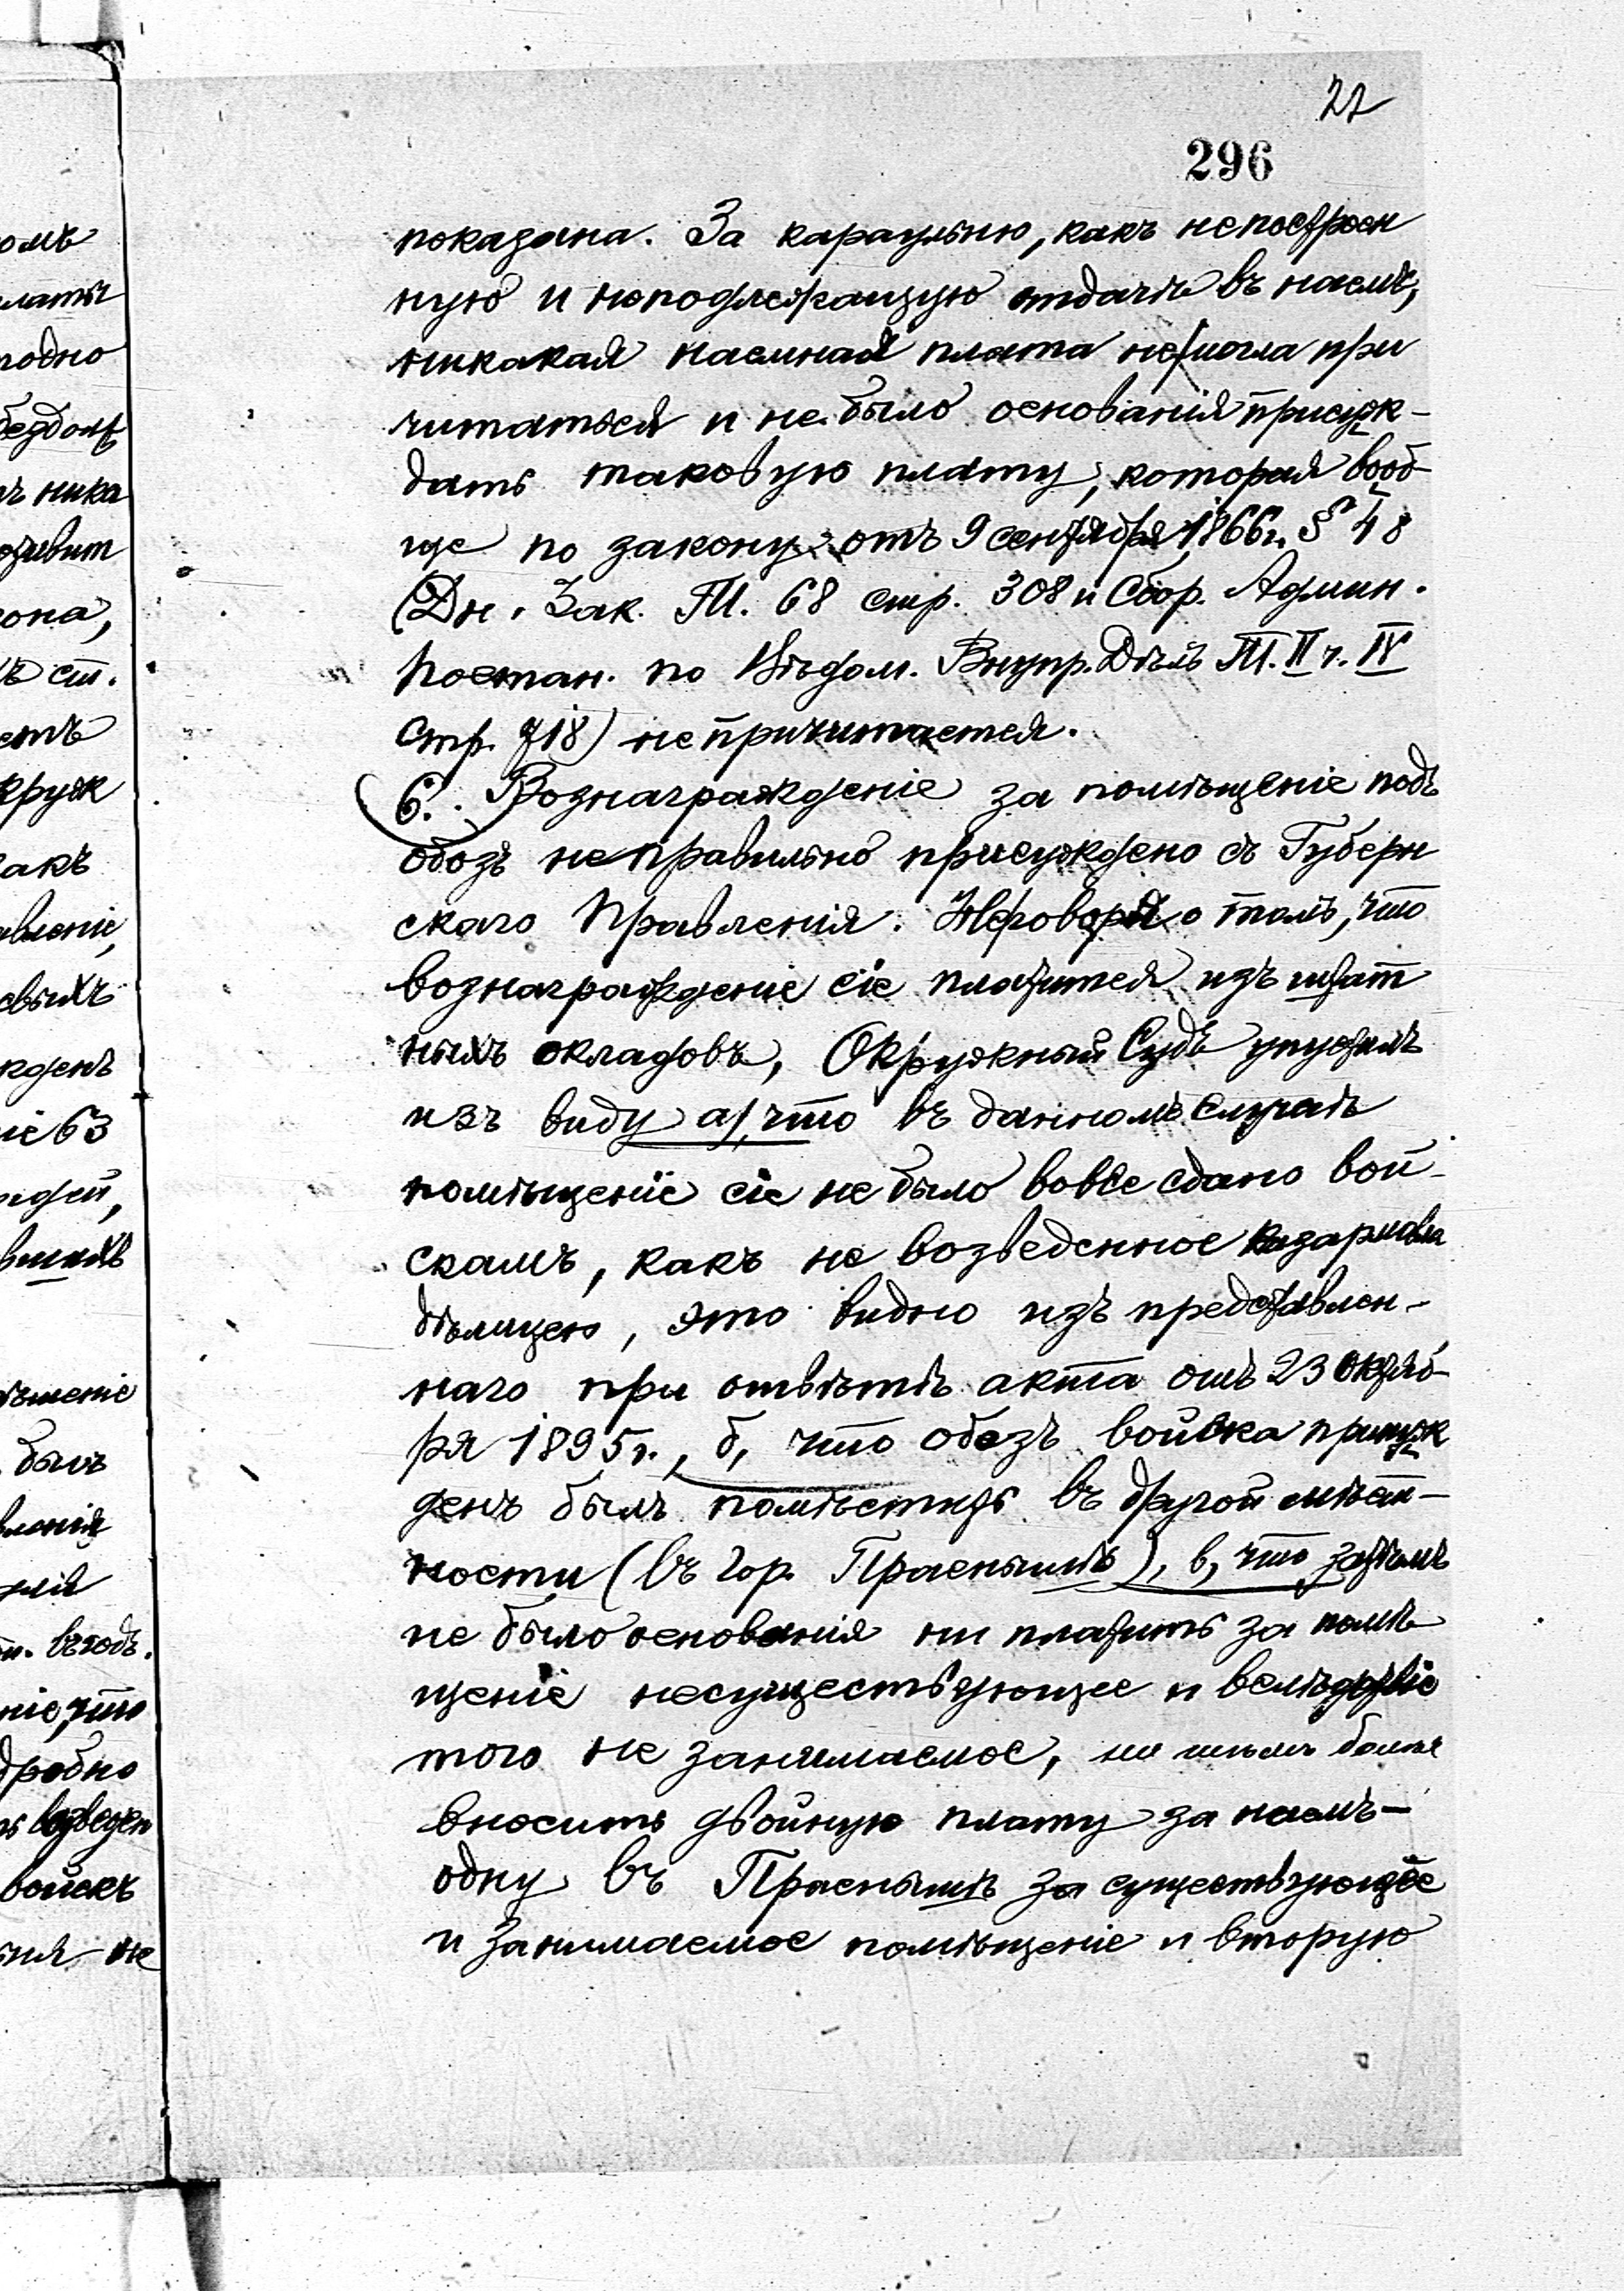 22
296
показана. За караульню, какъ непостроен
ную и неподлежащую отдачѣ въ наемъ,
никакая наемная плата не могла при
читаться и не было основанія присуж-
дать таковую плату, которая вооб-
ще по закону отъ 9 сентября 1866 г. § 48
(Дн. Зак. Т. 68 стр. 308 и Сбор. Админ.
Постан. по Вѣдом. Внутр. Дѣлъ Т. II ч. IV
Стр. 718) не причитается.
6. Вознагражденіе за помѣщеніе подъ
обозъ неправильно присуждено съ Губерн
скаго Правленія. Неговоря о томъ, что
вознагражденіе сіе платится изъ штат
ныхъ окладовъ, Окружный Судъ упустилъ
изъ виду а, что въ данномъ случаѣ
помѣщеніе сіе не было вовсе сдано вой-
скамъ, какъ не возведенное казармовла
дѣлицею, это видно изъ представлен-
наго при отвѣтѣ акта отъ 23 октяб-
ря 1895 г., б, что обозъ войска принуж
денъ былъ помѣстить въ другой мѣст-
ности (въ гор. Праснышѣ), в, что затѣмъ
не было основанія ни платить за помѣ
щеніе несуществующее и вслѣдствіе
того не занимаемое, ни тѣмъ болѣе
вносить двойную плату за наемъ-
одну въ Праснышѣ за существующее
и занимаемое помѣщеніе и вторую
омъ
латы
подно
ника
зона,
ъ ст.
етъ
круж
акъ
вленіе,
жденъ
іе 63
былъ
вленія
въ годъ.
ніе, что
дробно
возведен
войскъ
не